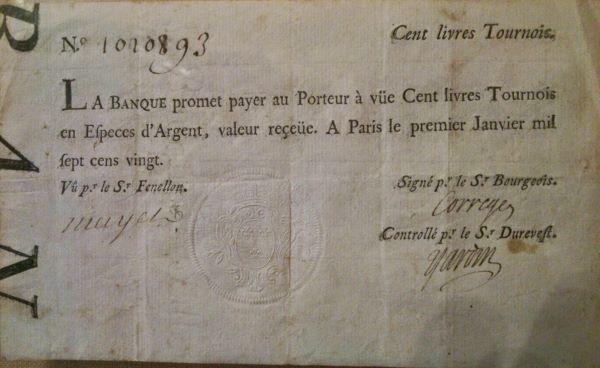 N.º 1020893 Cent livres Tournois.
LA BANQUE promet payer au Porteur à vüe Cent livres Tournois
en Eſpeces d'Argent, valeur reçeüe. A Paris le premier Janvier mil
ſept cens vingt.
Vû p.r le S.r Fenellon.
Signé p.r le S.r Bourgeois.
Controllé p.r le S.r Dureveſt.